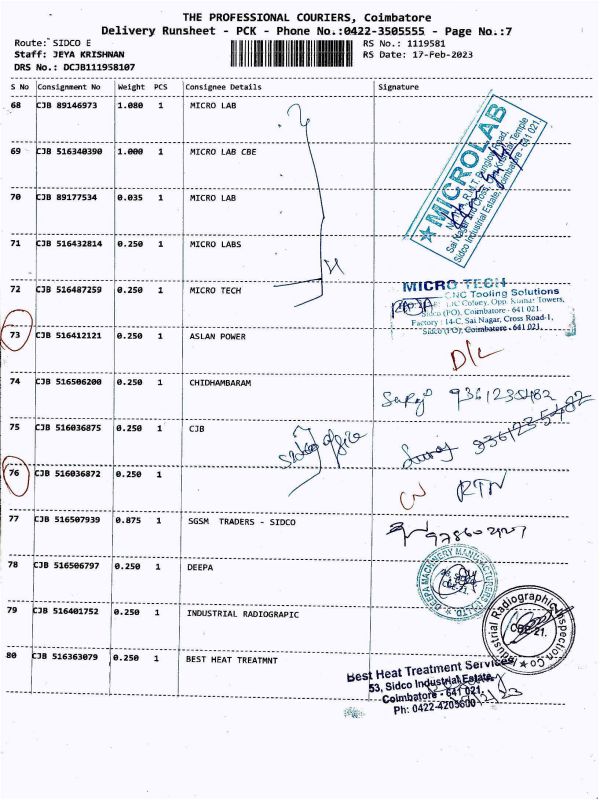 THE PROFESSIONAL COURIERS, Coimbatore
Delivery Runsheet - PCK - Phone No.:0422-3505555 - Page No.:7
Route: SIDCO E RS No.: 1119581
Staff: JEYA KRISHNAN RS Date: 17-Feb-2023
DRS No.: DCJB111958107
S No Consignment No Weight PCS Consignee Details Signature
68 CJB 89146973 1.080 1 MICRO LAB
MICROLAB
Sidco Industrial Estate, Coimbatore - 641 021.
69 CJB 516340390 1.000 1 MICRO LAB CBE
70 CJB 89177534 0.035 1 MICRO LAB
71 CJB 516432814 0.250 1 MICRO LABS
72 CJB 516487259 0.250 1 MICRO TECH
MICRO TECH
CNC Tooling Solutions
Colony, Opp. Kumar Towers,
Sidco (PO), Coimbatore - 641 021.
Factory : 14-C, Sai Nagar, Cross Road-1,
Sidco (PO), Coimbatore - 641 021.
73 CJB 516412121 0.250 1 ASLAN POWER D/L
74 CJB 516506200 0.250 1 CHIDHAMBARAM 9361235482
75 CJB 516036875 0.250 1 CJB Sidco office 9361235482
76 CJB 516036872 0.250 1 RTN
77 CJB 516507939 0.875 1 SGSM TRADERS - SIDCO
78 CJB 516506797 0.250 1 DEEPA
DEEPA MACHINERY MANUFACTURERS
79 CJB 516401752 0.250 1 INDUSTRIAL RADIOGRAPIC
Industrial Radiographic Inspection Co.
CBE-21.
80 CJB 516363079 0.250 1 BEST HEAT TREATMNT
Best Heat Treatment Services
53, Sidco Industrial Estate,
Coimbatore - 641 021.
Ph: 0422-4205600